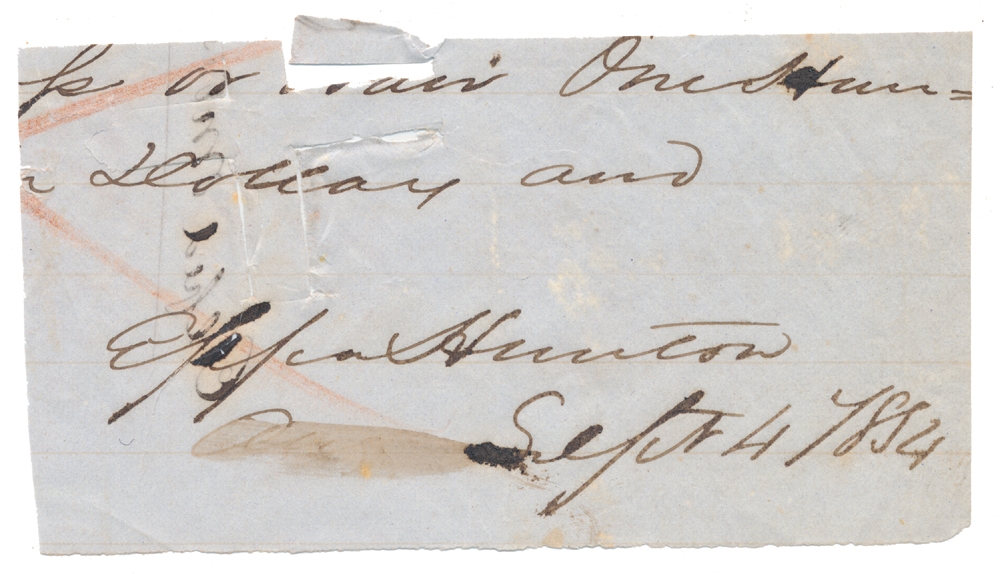 or One Hun=
Dollars and
Eppa Hunton
Sept 4 1854